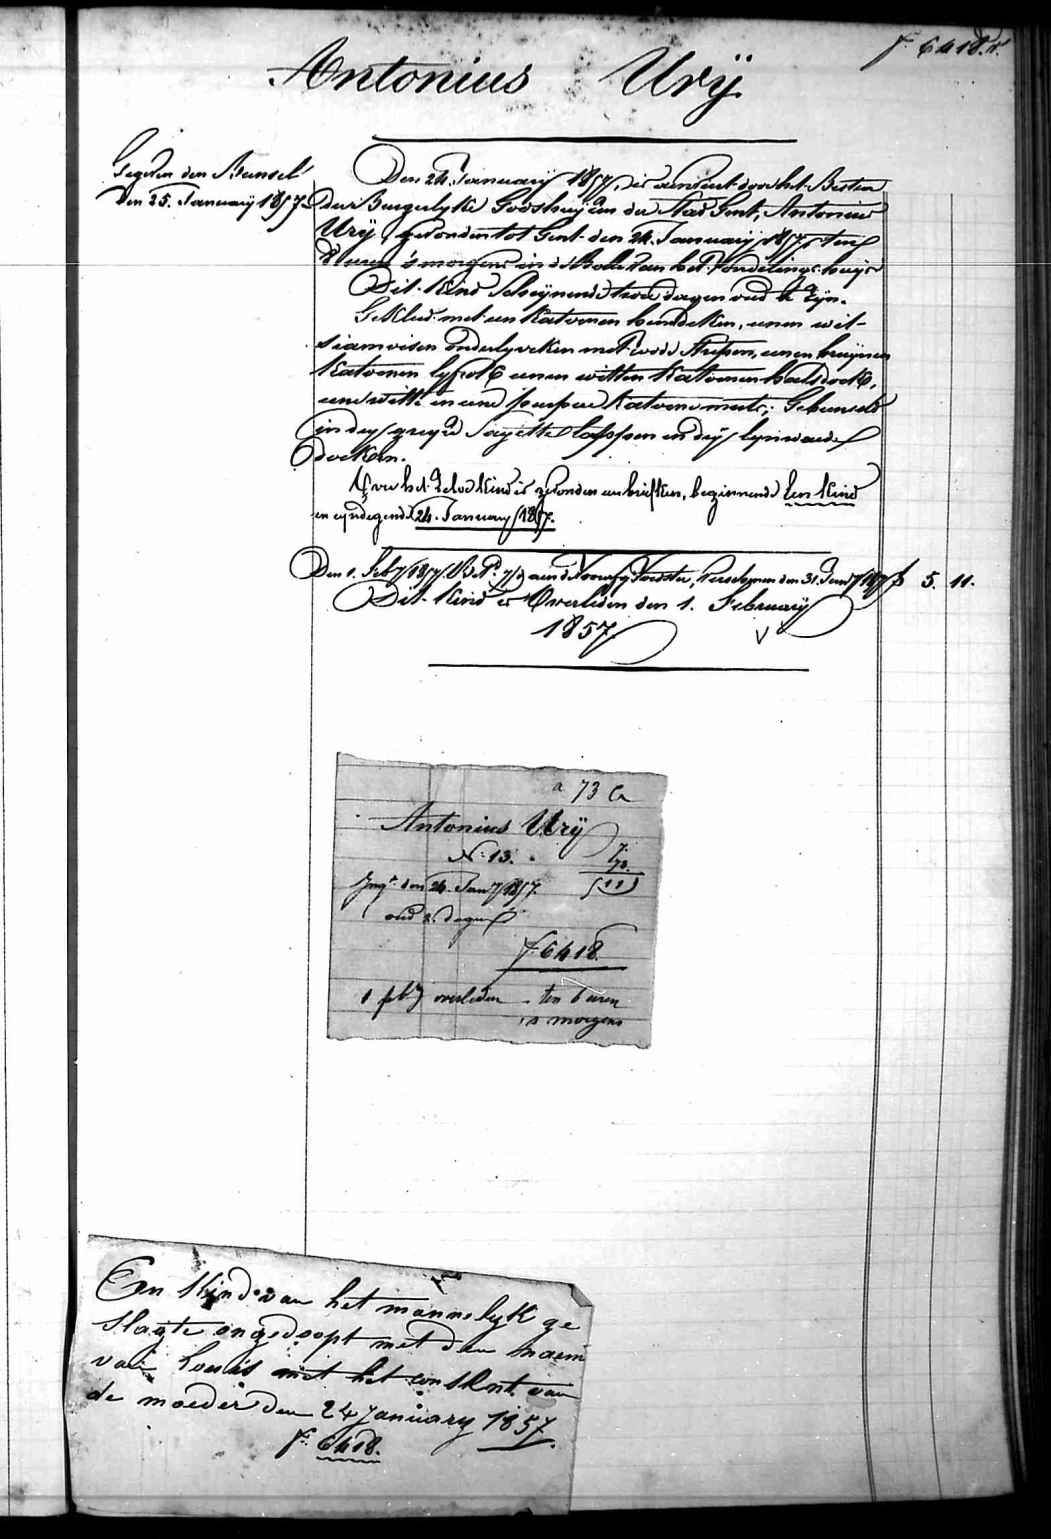 f. 6418.r.
Antonius Urÿ
Gegeven den Bunsel
Den 25. January 1857.
Den 24. January 1857, is aenveert door het Bestier
der Burgerlyke Godshuyzen der Stad Gent, Antonius
Urÿ, gevonden tot Gent den 24. January 1857, ten
8 uren 's morgens in de Rolle van het Vondelings-huys
Dit Kind Scheynende twee dagen oud te Zyn.
Gekleed met een Katoenen hemdeken, eenen wit-
siamoisen onderlyveken met roode Strepen, eenen bruynen
Katoenen lyfrok eenen witten Katoenen halsdoek,
eene witte en eene Katoene muts; Gebunseld
in dey gryze Sayette en dry lynwaede
doeken.
Op het Zelve Kind is gevonden een briefken, beginnende Een Kind
en eyndegende 24. January 1857.
Den 1. feby 1857 aen de Voorsten, Verschenen den 31. Jany 1857 f 5. 11.
Dit Kind is Overleden den 1. February
1857.
a 73 Ca
Antonius Urÿ
N: 13.
Ingt. den 24. Jany 1857.
(11)
oud 2. dagen
f. 6418.
1 feby overleden ten 6 uren
's morgens
Een Kind van het mannelyk ge
slagte ongedoopt met den naem
van Louis met het consent van
de moeder den 24 january 1857
f: 6418.